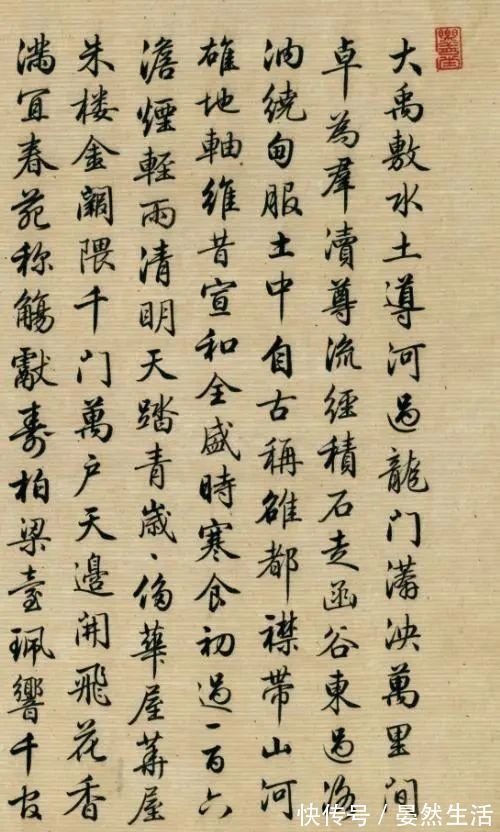 大禹敷水土導河過龍門泱萬里間
卓為羣瀆尊流經積石走函谷東過洛
汭繞甸服土中自古稱雒都襟帶山河
雄地軸維昔宣和全盛時寒食初過一百六
澹煙輕雨清明天踏青歲、侈華屋華屋
朱楼金闕隈千門萬户天邊開飛花香
滿宜春苑称觴獻壽柏梁臺珮響千官
快传号/晏然生活